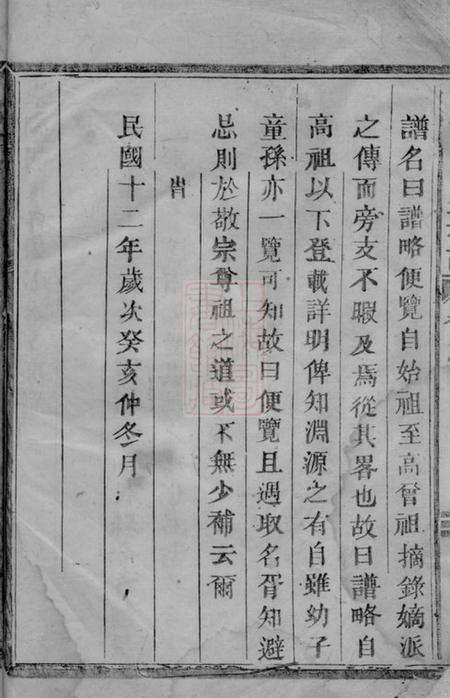 譜名曰譜略便覽自始祖至高曾祖摘錄嫡派
之傳而旁支不暇及焉從其畧也故曰譜略自
高祖以下登載詳明俾知淵源之有自雖幼子
童孫亦一覽可知故曰便覽且遇取名胥知避
忌則於敬宗尊祖之道或不無少補云爾
旹
民國十二年歲次癸亥仲冬月